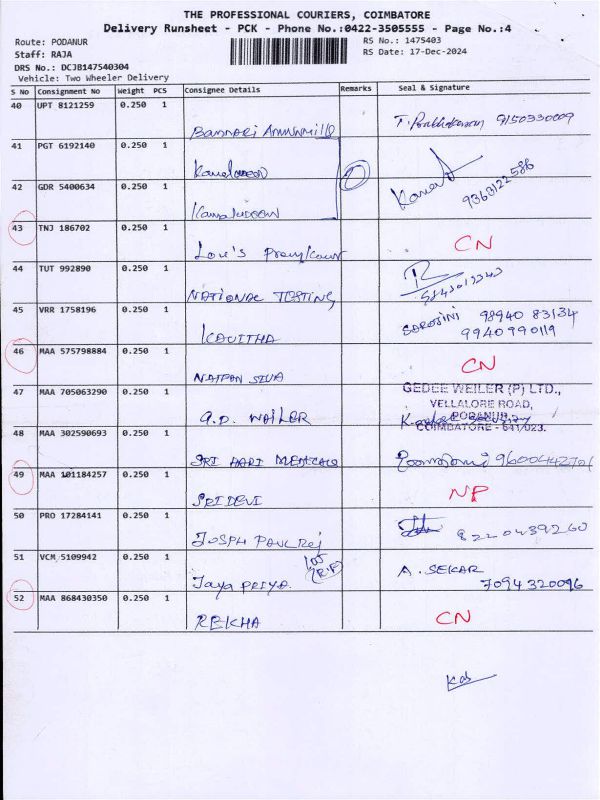 THE PROFESSIONAL COURIERS, COIMBATORE
Delivery Runsheet - PCK - Phone No.:0422-3505555 - Page No.:4
Route: PODANUR
RS No.: 1475403
Staff: RAJA
RS Date: 17-Dec-2024
DRS No.: DCJB147540304
Vehicle: Two Wheeler Delivery
S No Consignment No Weight PCS Consignee Details Remarks Seal & Signature
40 UPT 8121259 0.250 1 Bannari 9150330009
41 PGT 6192140 0.250 1 Kamaludeen
42 GDR 5400634 0.250 1 Kamaludeen 9363122586
43 TNJ 186702 0.250 1 CN
44 TUT 992890 0.250 1 NATIONAL TESTING
45 VRR 1758196 0.250 1 KAVITHA SAROJINI 98940 83134
9940990119
46 MAA 575798884 0.250 1 NATPAN SIVA CN
47 MAA 705063290 0.250 1 G.D. WAILER GEDEE WEILER (P) LTD.,
VELLALORE ROAD,
PODANUR,
COIMBATORE - 641/023.
48 MAA 302590693 0.250 1 SRI HARI MEDICALS
49 MAA 101184257 0.250 1 SRIDEVI NP
50 PRO 17284141 0.250 1 JOSPH PAULRAJ 8220439260
51 VCM 5109942 0.250 1 Jaya PRIYA A. SEKAR
7094320096
52 MAA 868430350 0.250 1 REKHA CN